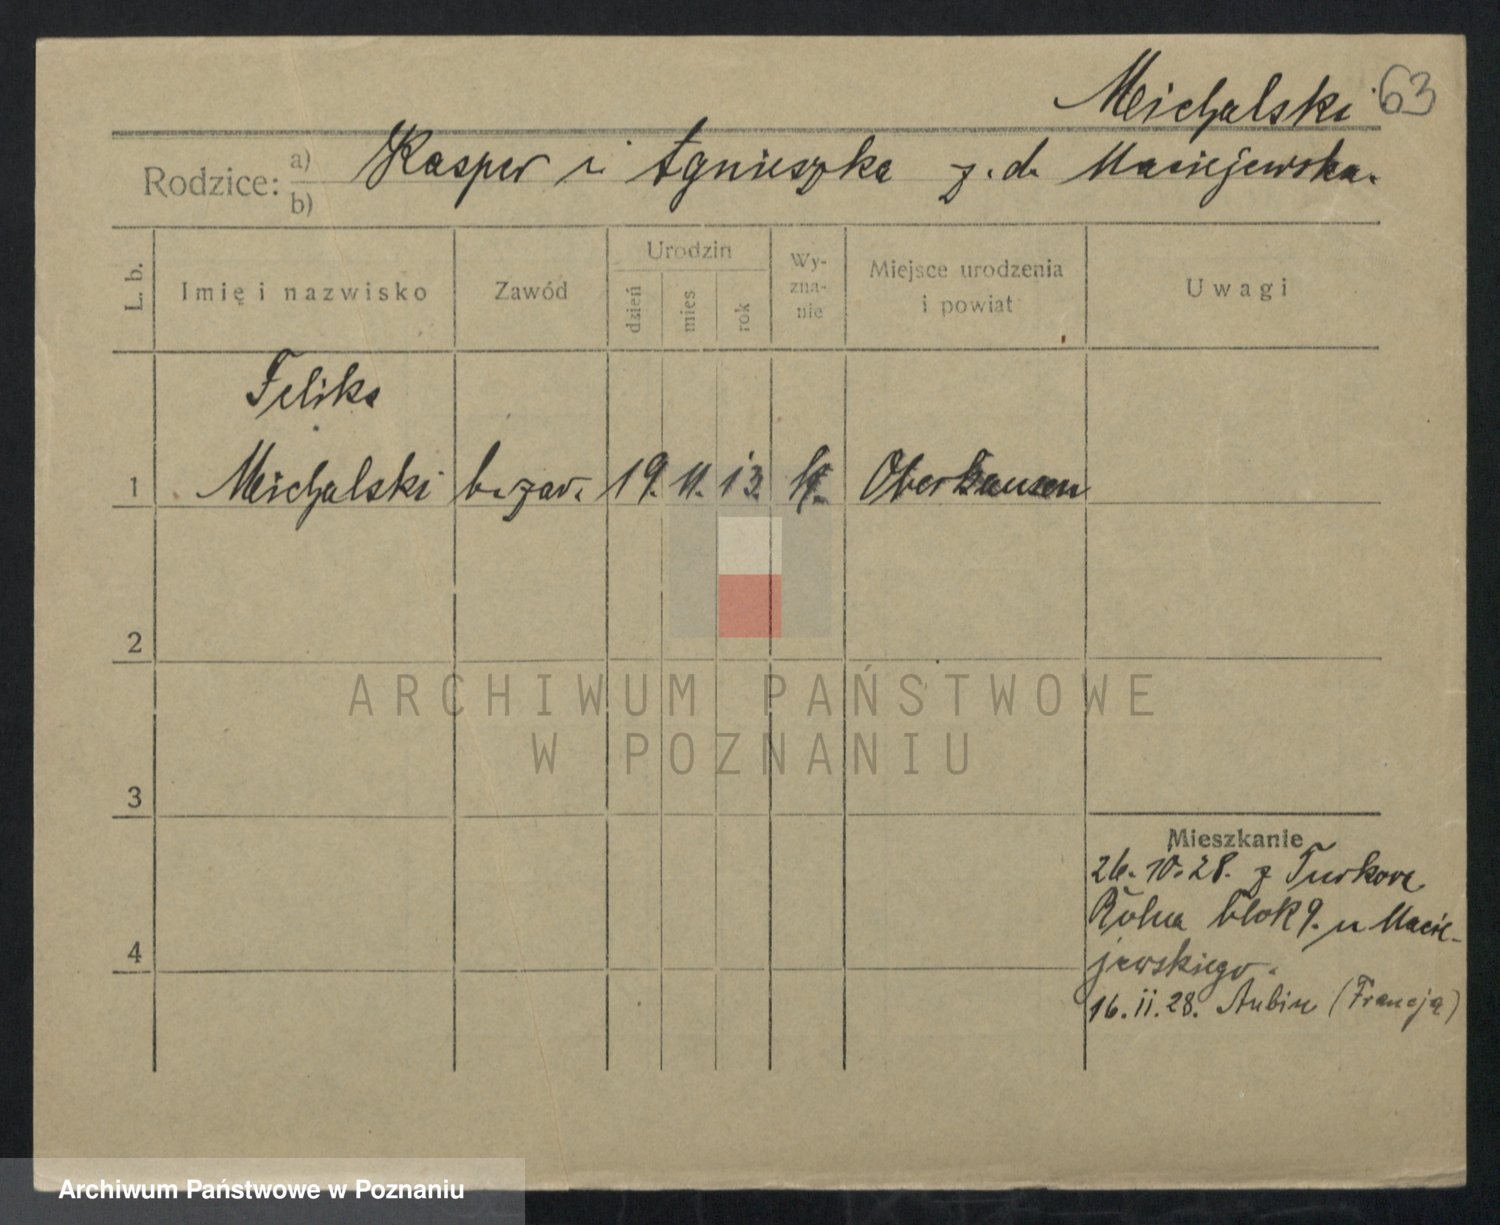 Michalski 63
Rodzice: a) Kasper i Agnieszka z. d. Maciejewska.
b)
L. b. Imię i nazwisko Zawód Urodzin dzień mies rok Wy-zna-nie Miejsce urodzenia i powiat Uwagi
Feliks
1 Michalski b. zaw. 19. 11. 13. Oberhausen
2
ARCHIWUM PAŃSTWOWE
W POZNANIU
3
Mieszkanie
26. 10. 28. z Turkowa
Rolna blok 9. u Macie-
4 jewskiego.
16. 11. 28. Aubin (Francja)
Archiwum Państwowe w Poznaniu